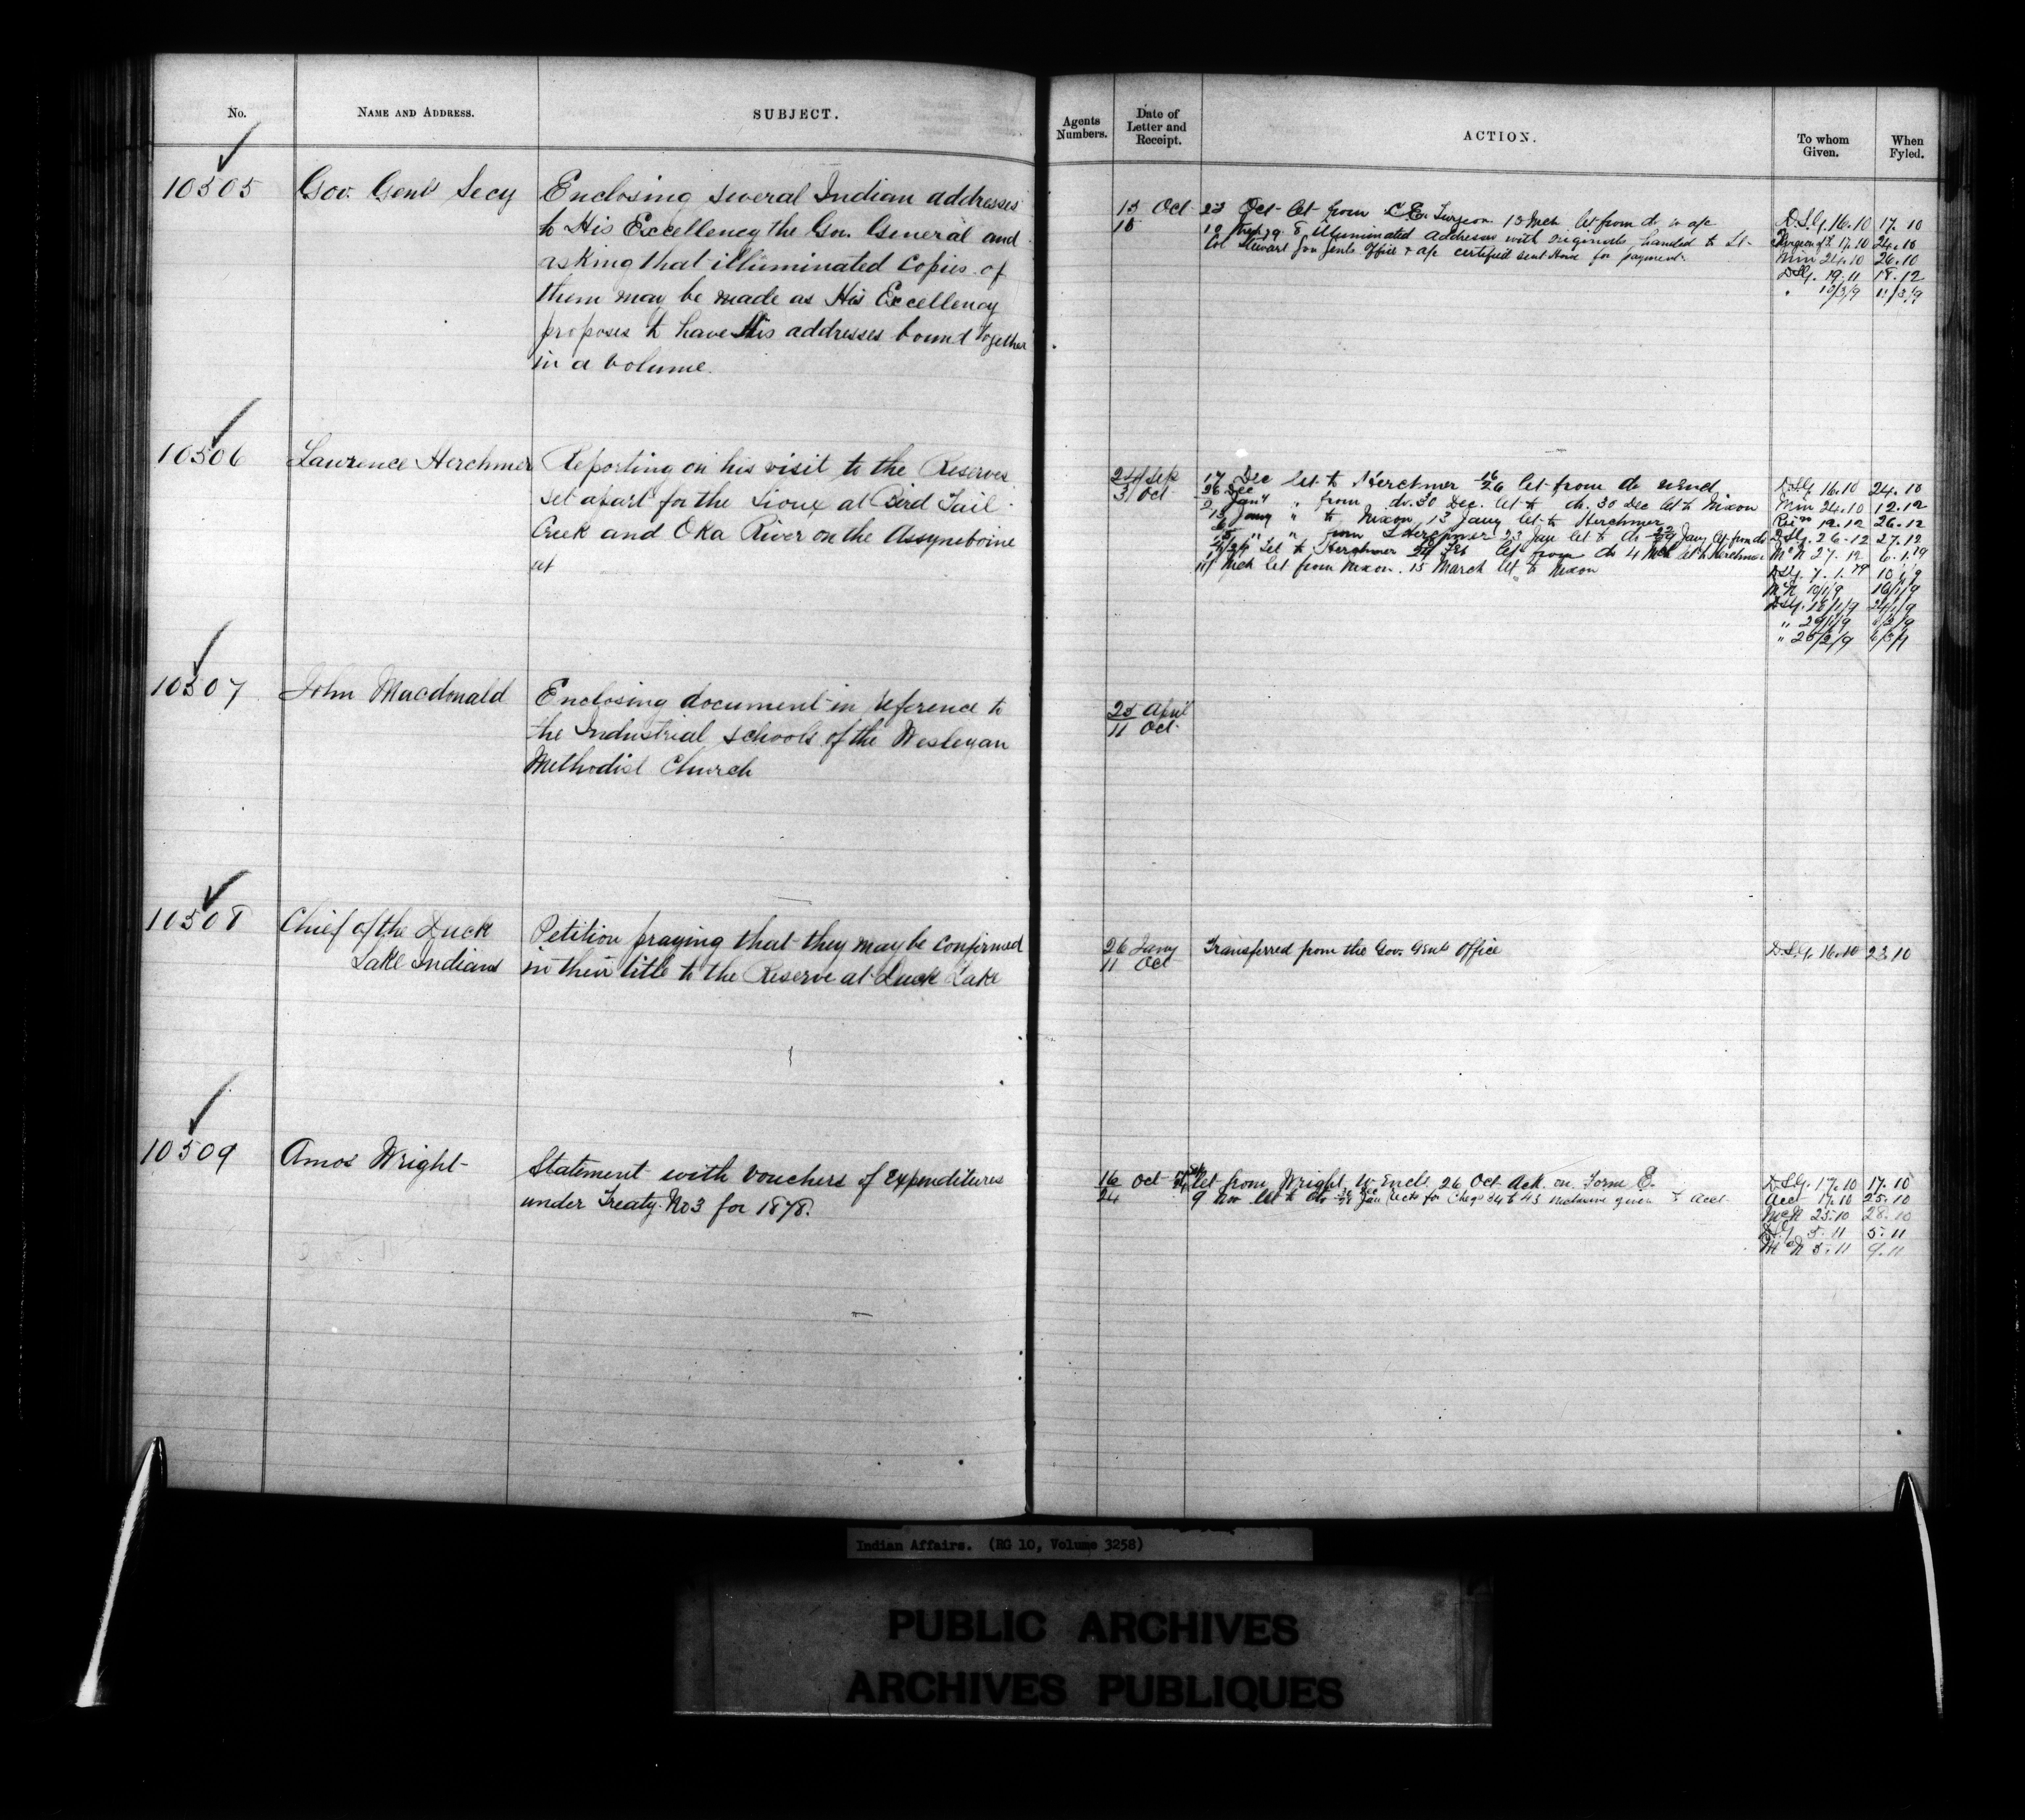 No.
NAME AND ADDRESS.
SUBJECT.
Agents Numbers.
Date of Letter and Receipt.
ACTION.
To whom Given.
When Fyled.
10505
Gov. Genls Secy
Enclosing several Indian addresses
to His Excellency the Gov. General and
asking that illuminated copies of
them may be made as His Excellency
proposes to have this addresses bound together
in a volume.
15 Oct
18
23 Oct let from C.E. Turgeon 10 Mch let from do
8 illuminated addresses with originals handed to Lt
Col Stewart Gov Genls Office & a/c certified sent for payment
D.S.G. 16.10 17.10
17.10 24.10
Min 24.10 26.10
D.S.G. 19.11 18.12
10/3/9 11/3/9
10506
Lawrence Herchmer
Reporting on his visit to the Reserves
set apart for the Sioux at Bird Tail
Creek and Oka River on the Assyneboine
at
24 Sep
3 Oct
17 Dec let to Herchmer 26 let from do
from do. 30 Dec. let to do. 30 Dec let to Nixon
Jany " to Nixon 13 Jany let to Herchmer
" " from Herchmer 23 Jan let to do Jany let from do
let to Herchmer 24 Feb let from do 4 Mch let to Herchmer
11 Mch let from Nixon. 15 March let to Nixon
D.S.G. 16.10 24.10
Min 24.10 12.12
12.12 26.12
D.S.G. 26.12 27.12
McN 27.12 6.1.79
D.S.G. 7.1.79 10/1/9
McN 10/1/9 16/1/9
D.S.G. 18/1/9 24/1/9
" 29/1/9
" 25/2/9
10507
John Macdonald
Enclosing document in reference to
the Industrial schools of the Wesleyan
Methodist Church
25 April
11 Oct
10508
Chief of the Duck
Lake Indians
Petition praying that they may be confirmed
in their title to the Reserve at Duck Lake
26 Jany
11 Oct
Transferred from the Gov. Genls Office
D.S.G. 16.10 23.10
10509
Amos Wright
Statement with vouchers of expenditures
under Treaty No 3 for 1878.
16 Oct
24
let from Wright w Encls. 26 Oct Ack. on Form E.
9 Nov let to do Jan for Cheqs 34 to 43 inclusive given to Acct
D.S.G. 17.10 17.10
Acct 17.10 25.10
McN 25.10 28.10
D.S.G. 5.11 5.11
McN 5.11 9.11
Indian Affairs. (RG 10, Volume 3258)
PUBLIC ARCHIVES
ARCHIVES PUBLIQUES